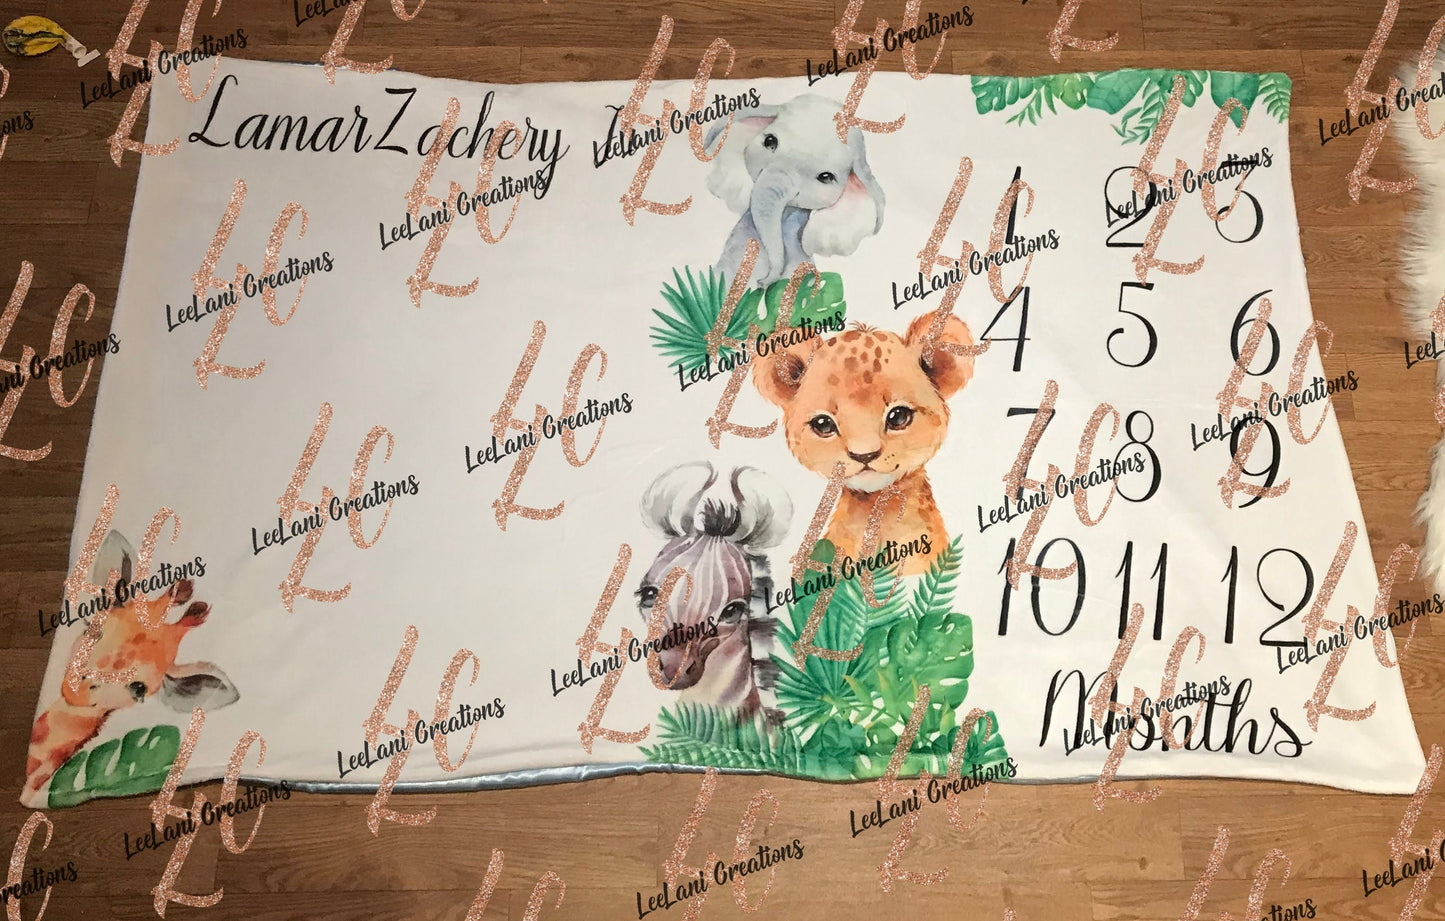 LamarZachery
1 2 3
4 5 6
7 8 9
10 11 12
Months
LeeLani Creations
LC
L